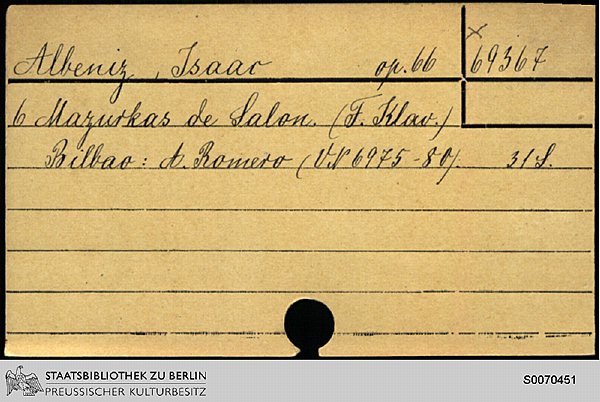 x
Albeniz, Isaac op. 66 69367
6 Mazurkas de Salon. (F. Klav.)
Bilbao: A. Romero (VN 6975-80). 31 S.
STAATSBIBLIOTHEK ZU BERLIN
PREUSSISCHER KULTURBESITZ
S0070451